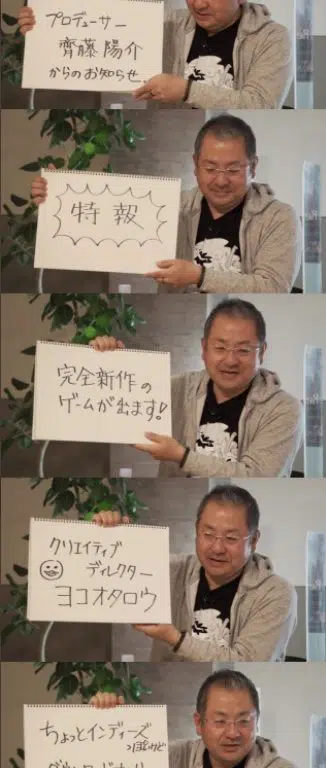 プロデューサー
齊藤陽介
からのお知らせ。
特報
完全新作の
ゲームが出ます!
クリエイティブ
ディレクター
ヨコオタロウ
ちょっとインディーズ
っぽいけど